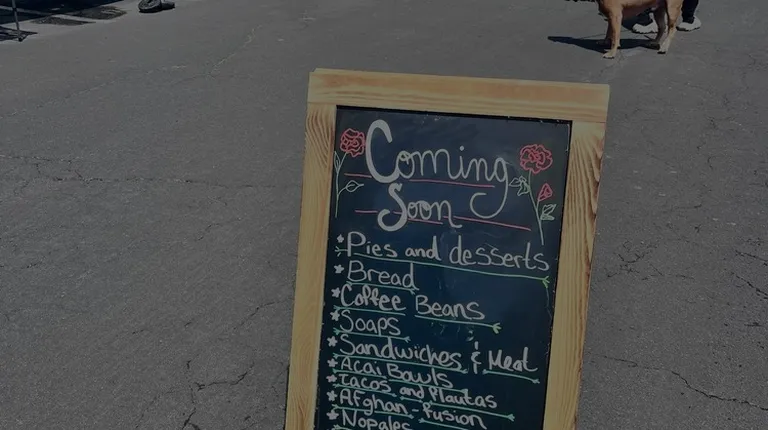 Coming
Soon
*Pies and desserts
*Bread
*Coffee Beans
*Soaps
*Sandwiches & Meat
*Acai Bowls
*Tacos and Flautas
*Afghan-fusion
*Nopales